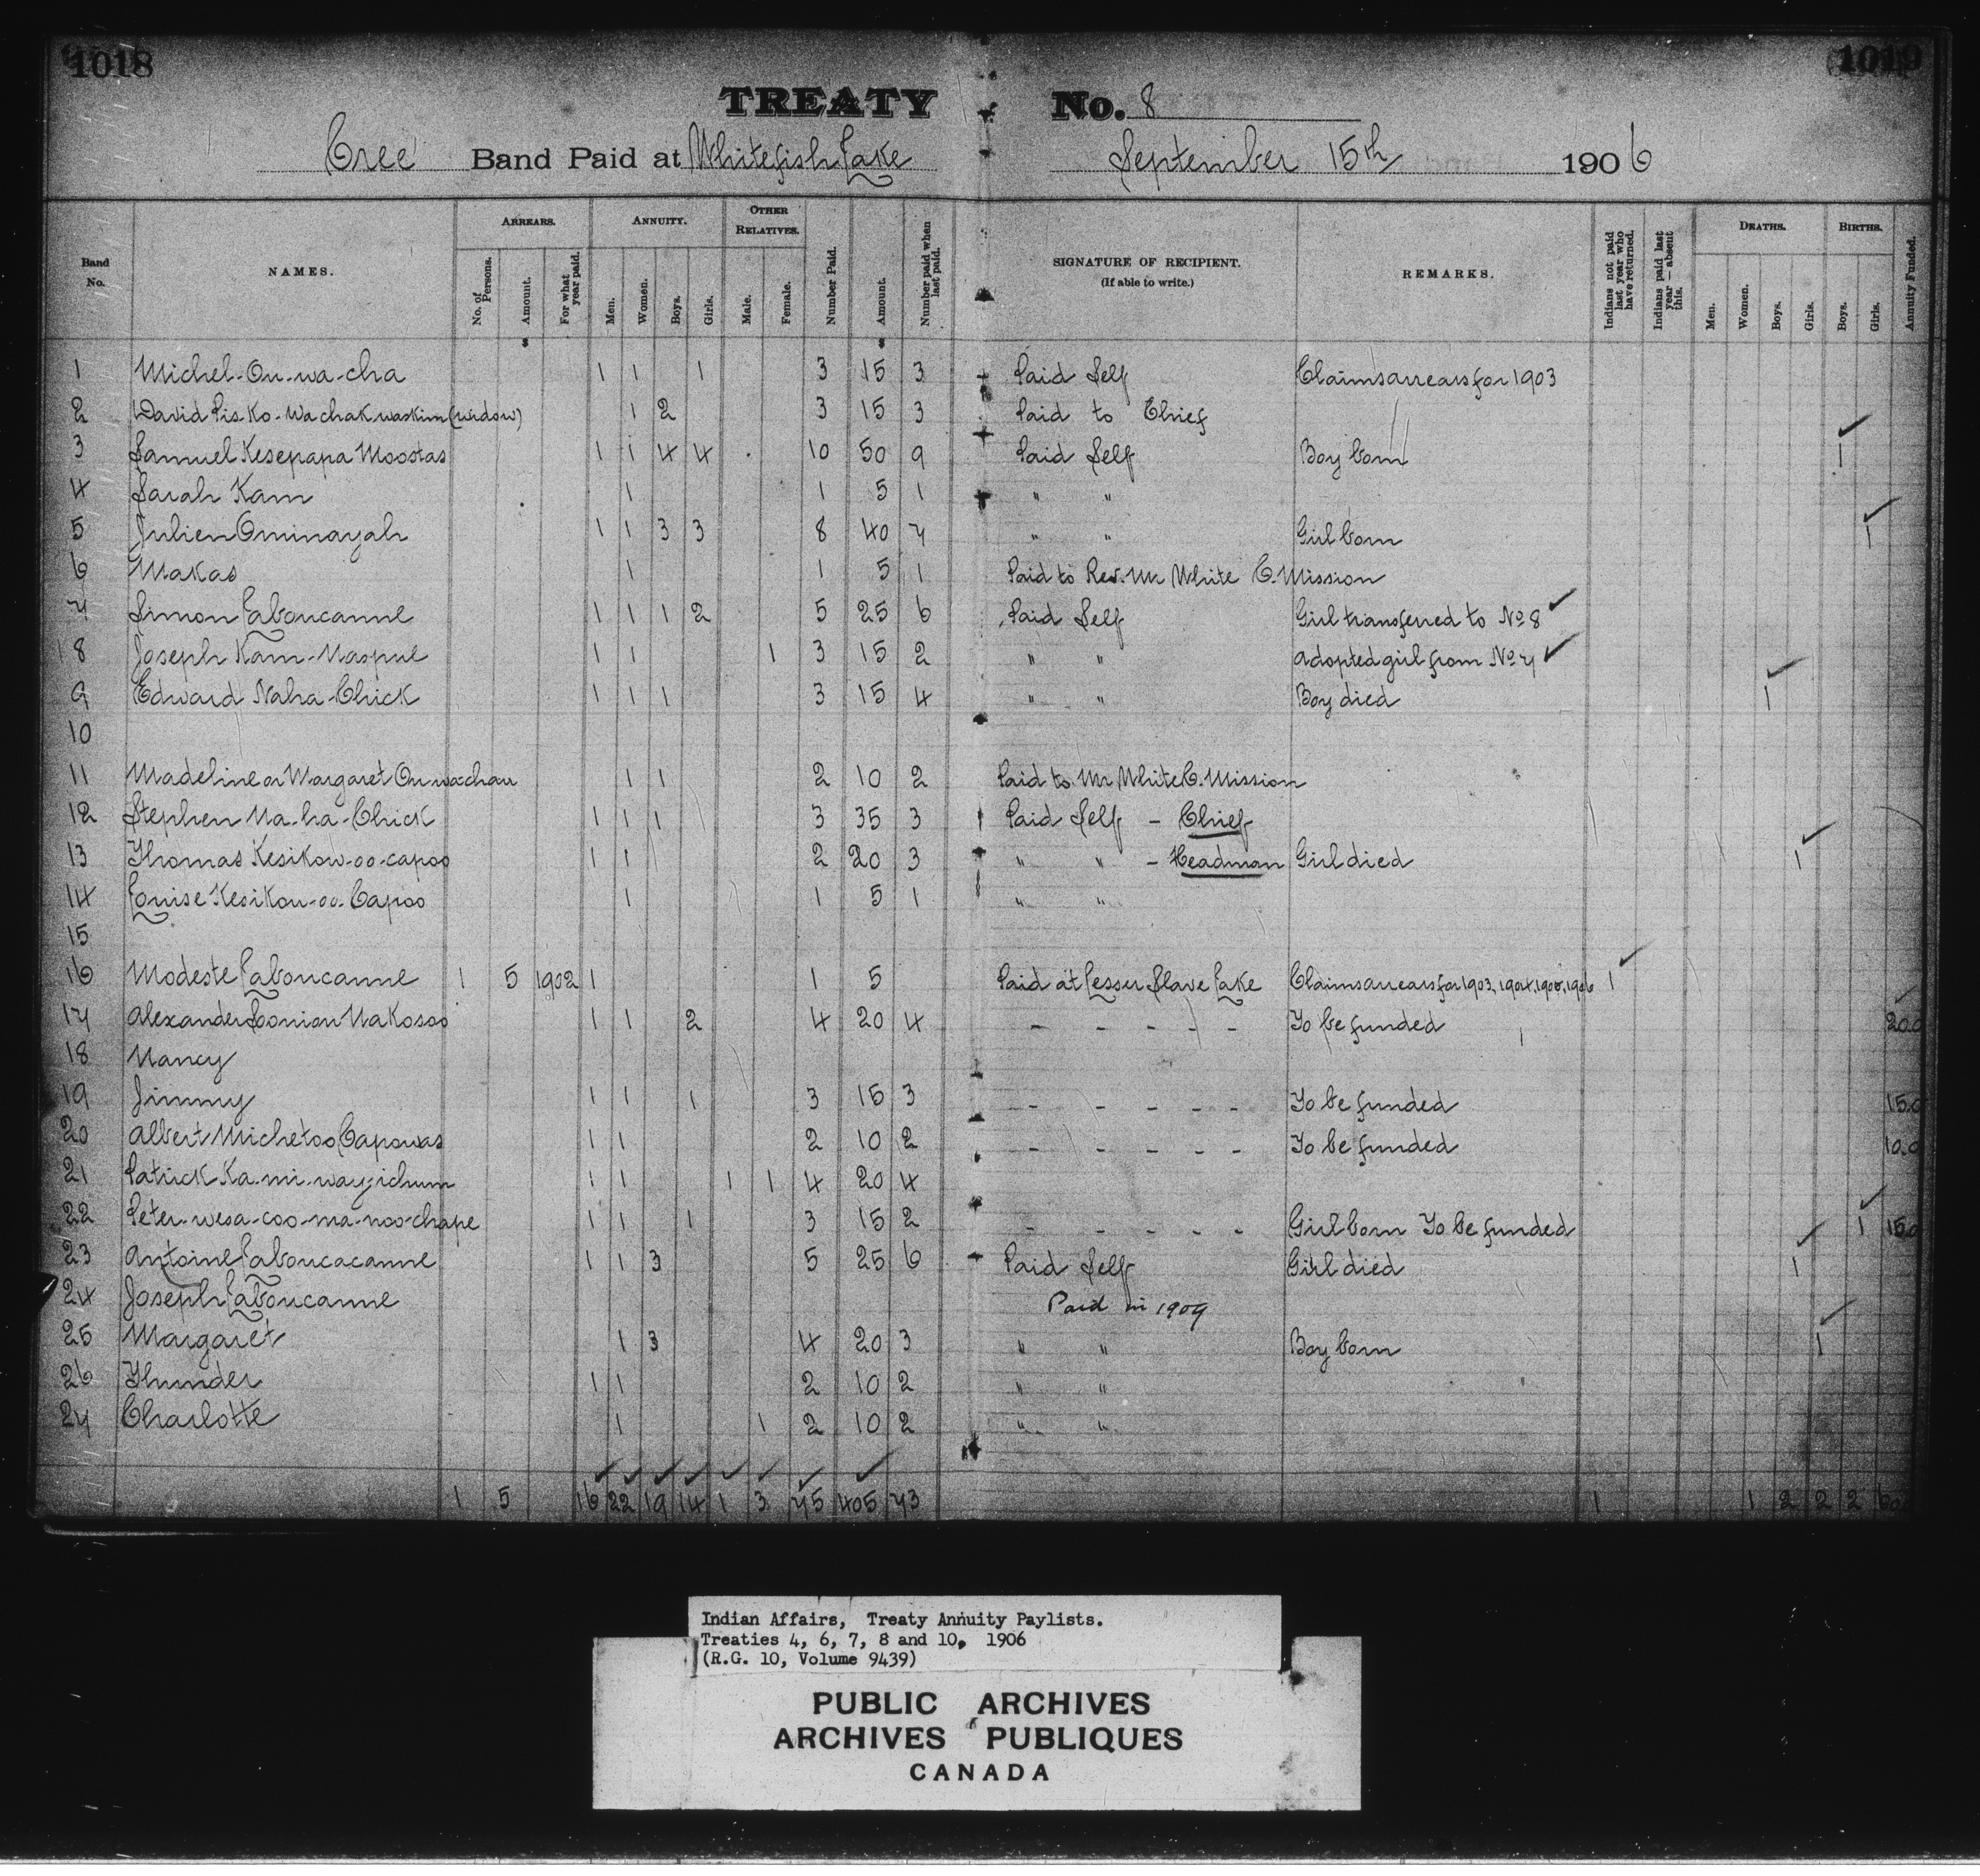 1018
1019
TREATY No. 8
Cree Band Paid at Whitefish Lake September 15th 1906
Band No. NAMES. ARREARS. No. of Persons. Amount. For what year paid. ANNUITY. Men. Women. Boys. Girls. OTHER RELATIVES. Male. Female. Number Paid. Amount. Number paid when last paid. SIGNATURE OF RECIPIENT. (If able to write.) REMARKS. Indians not paid last year who have returned. Indians paid last year — absent this. DEATHS. Men. Women. Boys. Girls. BIRTHS. Boys. Girls. Annuity Funded.
1 Michel-On-wa-cha 1 1 1 3 15 3 Paid Self Claims arrears for 1903
2 David Pis-Ko-Wachakwaskim (widow) 1 2 3 15 3 Paid to Chief
3 Samuel Kesepapa Moostas 1 1 4 4 10 50 9 Paid Self Boy born 1
4 Sarah Kam 1 1 5 1 " "
5 Julien Ominayah 1 1 3 3 8 40 7 " " Girl born 1
6 Makas 1 1 5 1 Paid to Rev. Mr White C. Mission
7 Simon Laboucanne 1 1 1 2 5 25 6 Paid Self Girl transferred to No 8
8 Joseph Kam-Naspue 1 1 1 3 15 2 " " adopted girl from No 7
9 Edward Naha-Chick 1 1 1 3 15 4 " " Boy died 1
10
11 Madeline or Margaret On-wachau 1 1 2 10 2 Paid to Mr White C. Mission
12 Stephen Na-ha-Chick 1 1 1 3 35 3 Paid Self - Chief
13 Thomas Kesikow-oo-capoo 1 1 2 20 3 " " - Headman Girl died 1
14 Louise Kesikow-oo-Capoo 1 1 5 1 " "
15
16 Modeste Laboucanne 1 5 1902 1 1 5 Paid at Lesser Slave Lake Claims arrears for 1903, 1904, 1905, 1906 1
17 Alexander Soonian Nakosoo 1 1 2 4 20 4 - - - - - To be funded 20.0
18 Nancy
19 Jimmy 1 1 1 3 15 3 - - - - - To be funded 15.0
20 Albert Michetoo Capowas 1 1 2 10 2 - - - - - To be funded 10.0
21 Patrick Ka-mi-wayichum 1 1 1 1 4 20 4
22 Peter-wesa-coo-ma-noo-chape 1 1 1 3 15 2 - - - - - Girl born To be funded 1 15.0
23 Antoine Laboucacanne 1 1 3 5 25 6 Paid Self Girl died 1
24 Joseph Laboucanne Paid in 1907
25 Margaret 1 3 4 20 3 " " Boy born 1
26 Thunder 1 1 2 10 2 " "
27 Charlotte 1 1 2 10 2 " "
1 5 16 22 19 14 1 3 75 405 73 1 1 2 2 2 60
Indian Affairs, Treaty Annuity Paylists.
Treaties 4, 6, 7, 8 and 10, 1906
(R.G. 10, Volume 9439)
PUBLIC ARCHIVES
ARCHIVES PUBLIQUES
CANADA